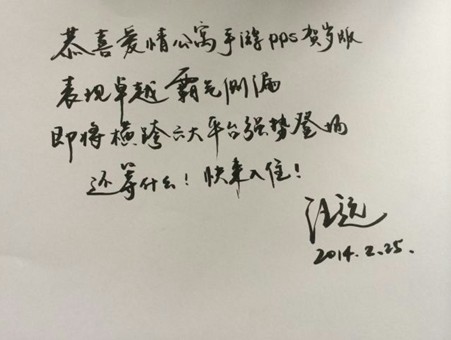 恭喜爱情公寓手游pps贺岁版
表现卓越 霸气侧漏
即将横跨六大平台强势登场
还等什么！快来入住！
汪远
2014.2.25.